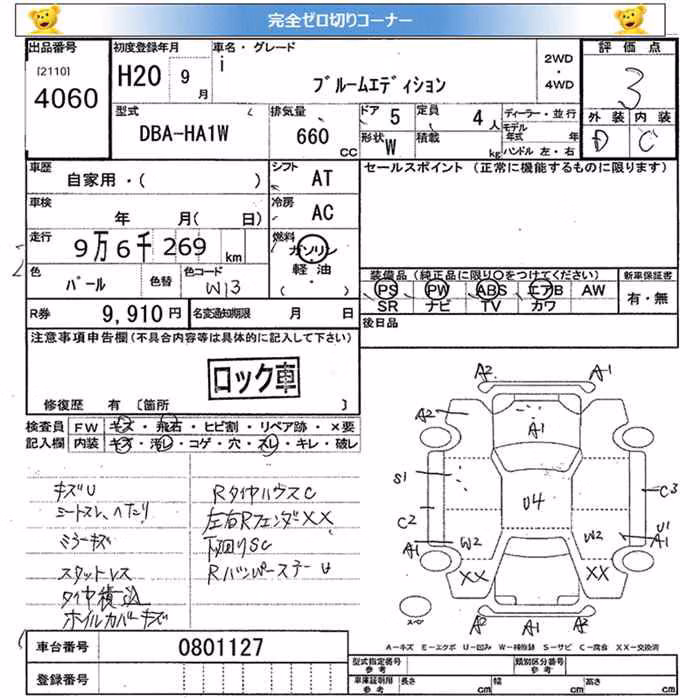 完全ゼロ切りコーナー
出品番号
[2110]
4060
初度登録年月
H20 9月
車名・グレード
i
ブルームエディション
2WD
・
4WD
評価点
3
外装 内装
D C
型式
DBA-HA1W
排気量
660 CC
ドア 5
定員 4人
形状 W
積載 kg
ディーラー・並行
モデル年式 年
ハンドル 左・右
車歴
自家用・( )
シフト
AT
セールスポイント (正常に機能するものに限ります)
車検
年 月( 日)
冷房
AC
走行
9万6千269 km
燃料
ガソリン
軽油
・( )
色
パール
色替
色コード
W13
装備品 (純正品に限り○をつけてください)
PS PW ABS エアB AW
SR ナビ TV カワ
新車保証書
有・無
R券
9,910円
名変通知期限 月 日
後日品
注意事項申告欄(不具合内容等は具体的に記入して下さい)
ロック車
修復歴 有 [箇所 ]
検査員記入欄
FW キズ・飛石・ヒビ割・リペア跡・×要
内装 キズ・汚レ・コゲ・穴・スレ・キレ・破レ
キズU
シートスレ、ヘタリ
ミラーキズ
スタットレス
タイヤ積込
ホイルカバーキズ
RタイヤハウスC
左右RフェンダXX
下回りSC
RバンパーステーU
A2 A1
A2
A1
S1
U4
C3
C2
A1
W2
W2
U1
A1
XX
XX
A2 A1 A2
スペア
A－キズ E－エクボ U－凹み W－補修跡 S－サビ C－腐食 XX－交換済
車台番号
0801127
登録番号
型式指定番号
参考
類別区分番号
参考
車庫証明用
参考
長さ cm
幅 cm
高さ cm